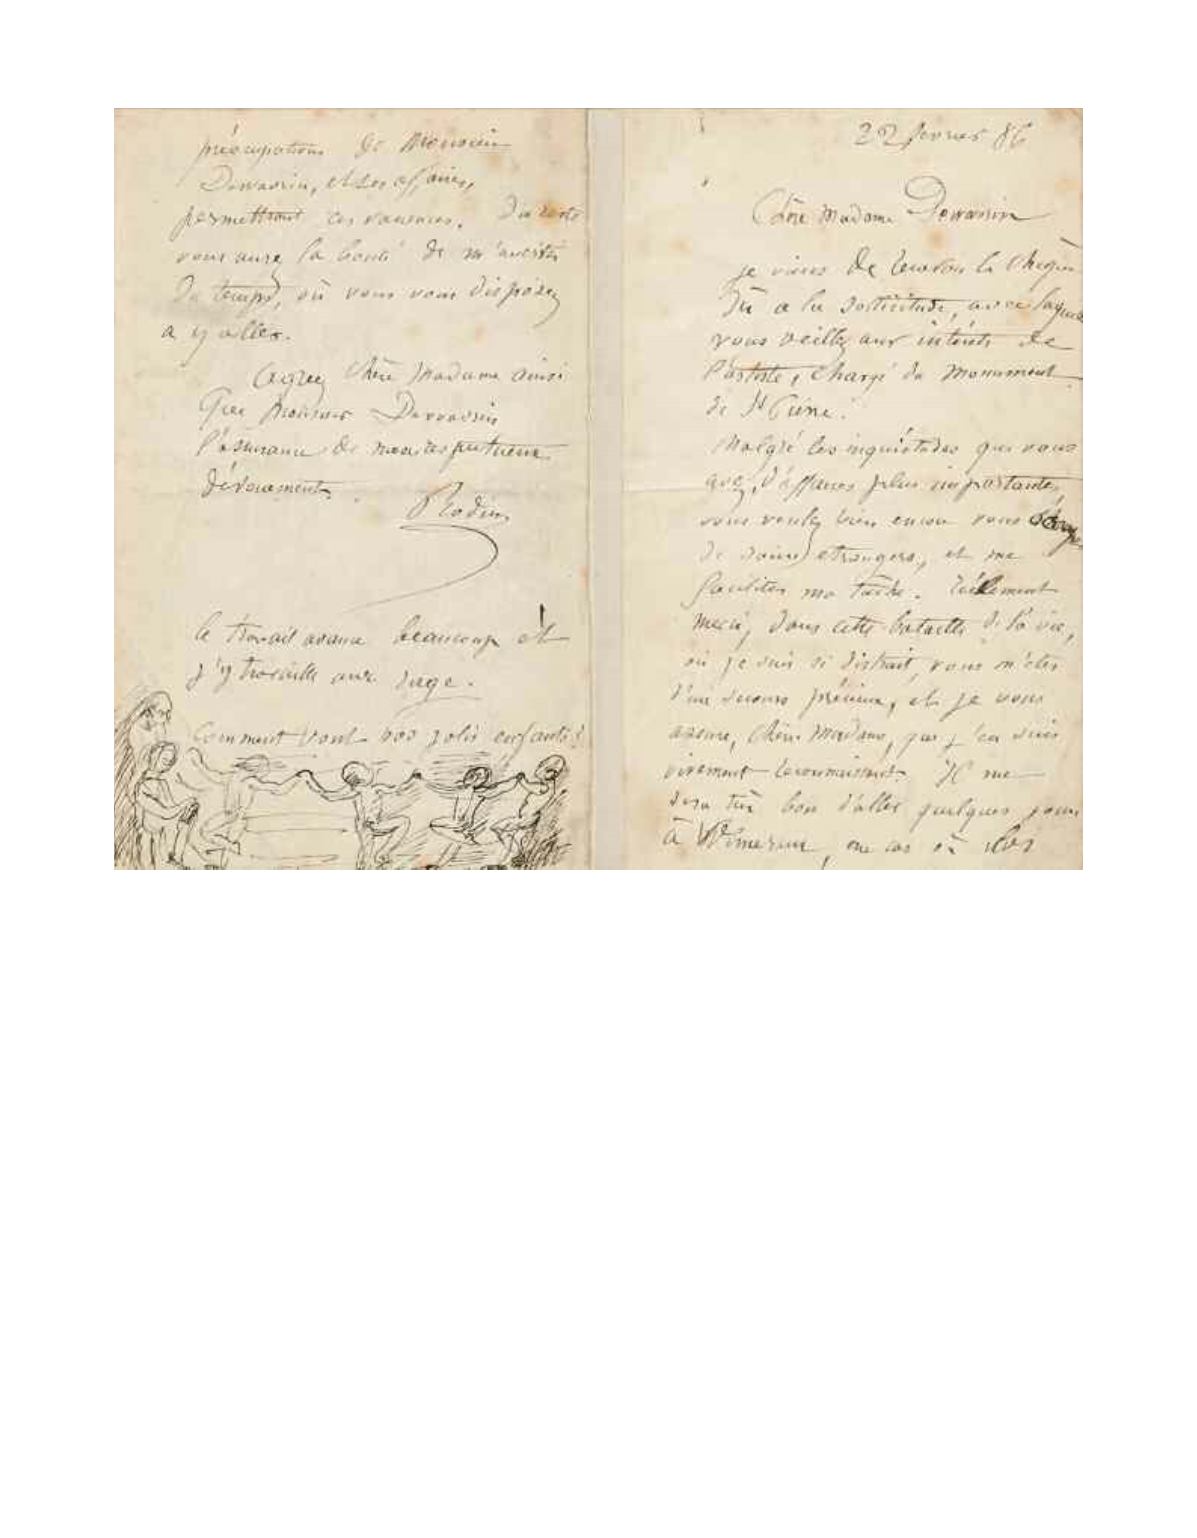 22 fevrier 86
Chère Madame Dewavrin
je viens de recevoir le chèque
Dû a la sollicitude, avec laquelle
vous veillez aux intérêts de
l'artiste, chargé du monument
de St Pierre.
Malgré les inquiétudes que vous
avez, d'affaires plus importantes,
vous voulez bien encore vous
de soins etrangers, et me
faciliter ma tâche. réellement
merci, dans cette bataille de la vie,
où je suis si distrait, vous m'etes
d'un secours précieux, et je vous
assure, chère Madame, que j'en suis
vivement reconnaissant. Il me
sera très bon d'aller quelques jours
à Wimereux, au cas où les
préocupations de Monsieur
Dewavrin, et ses affaires,
permettront ces vacances. Du reste
vous aurez la bonté de m'avertir
du temps, où vous vous disposez
a y aller.
Agreez Chère Madame ainsi
que Monsieur Dewavrin
l'assurance de mon respectueux
dévouement
Rodin
le travail avance beaucoup et
j'y travaille avec rage.
Comment vont vos jolis enfants?